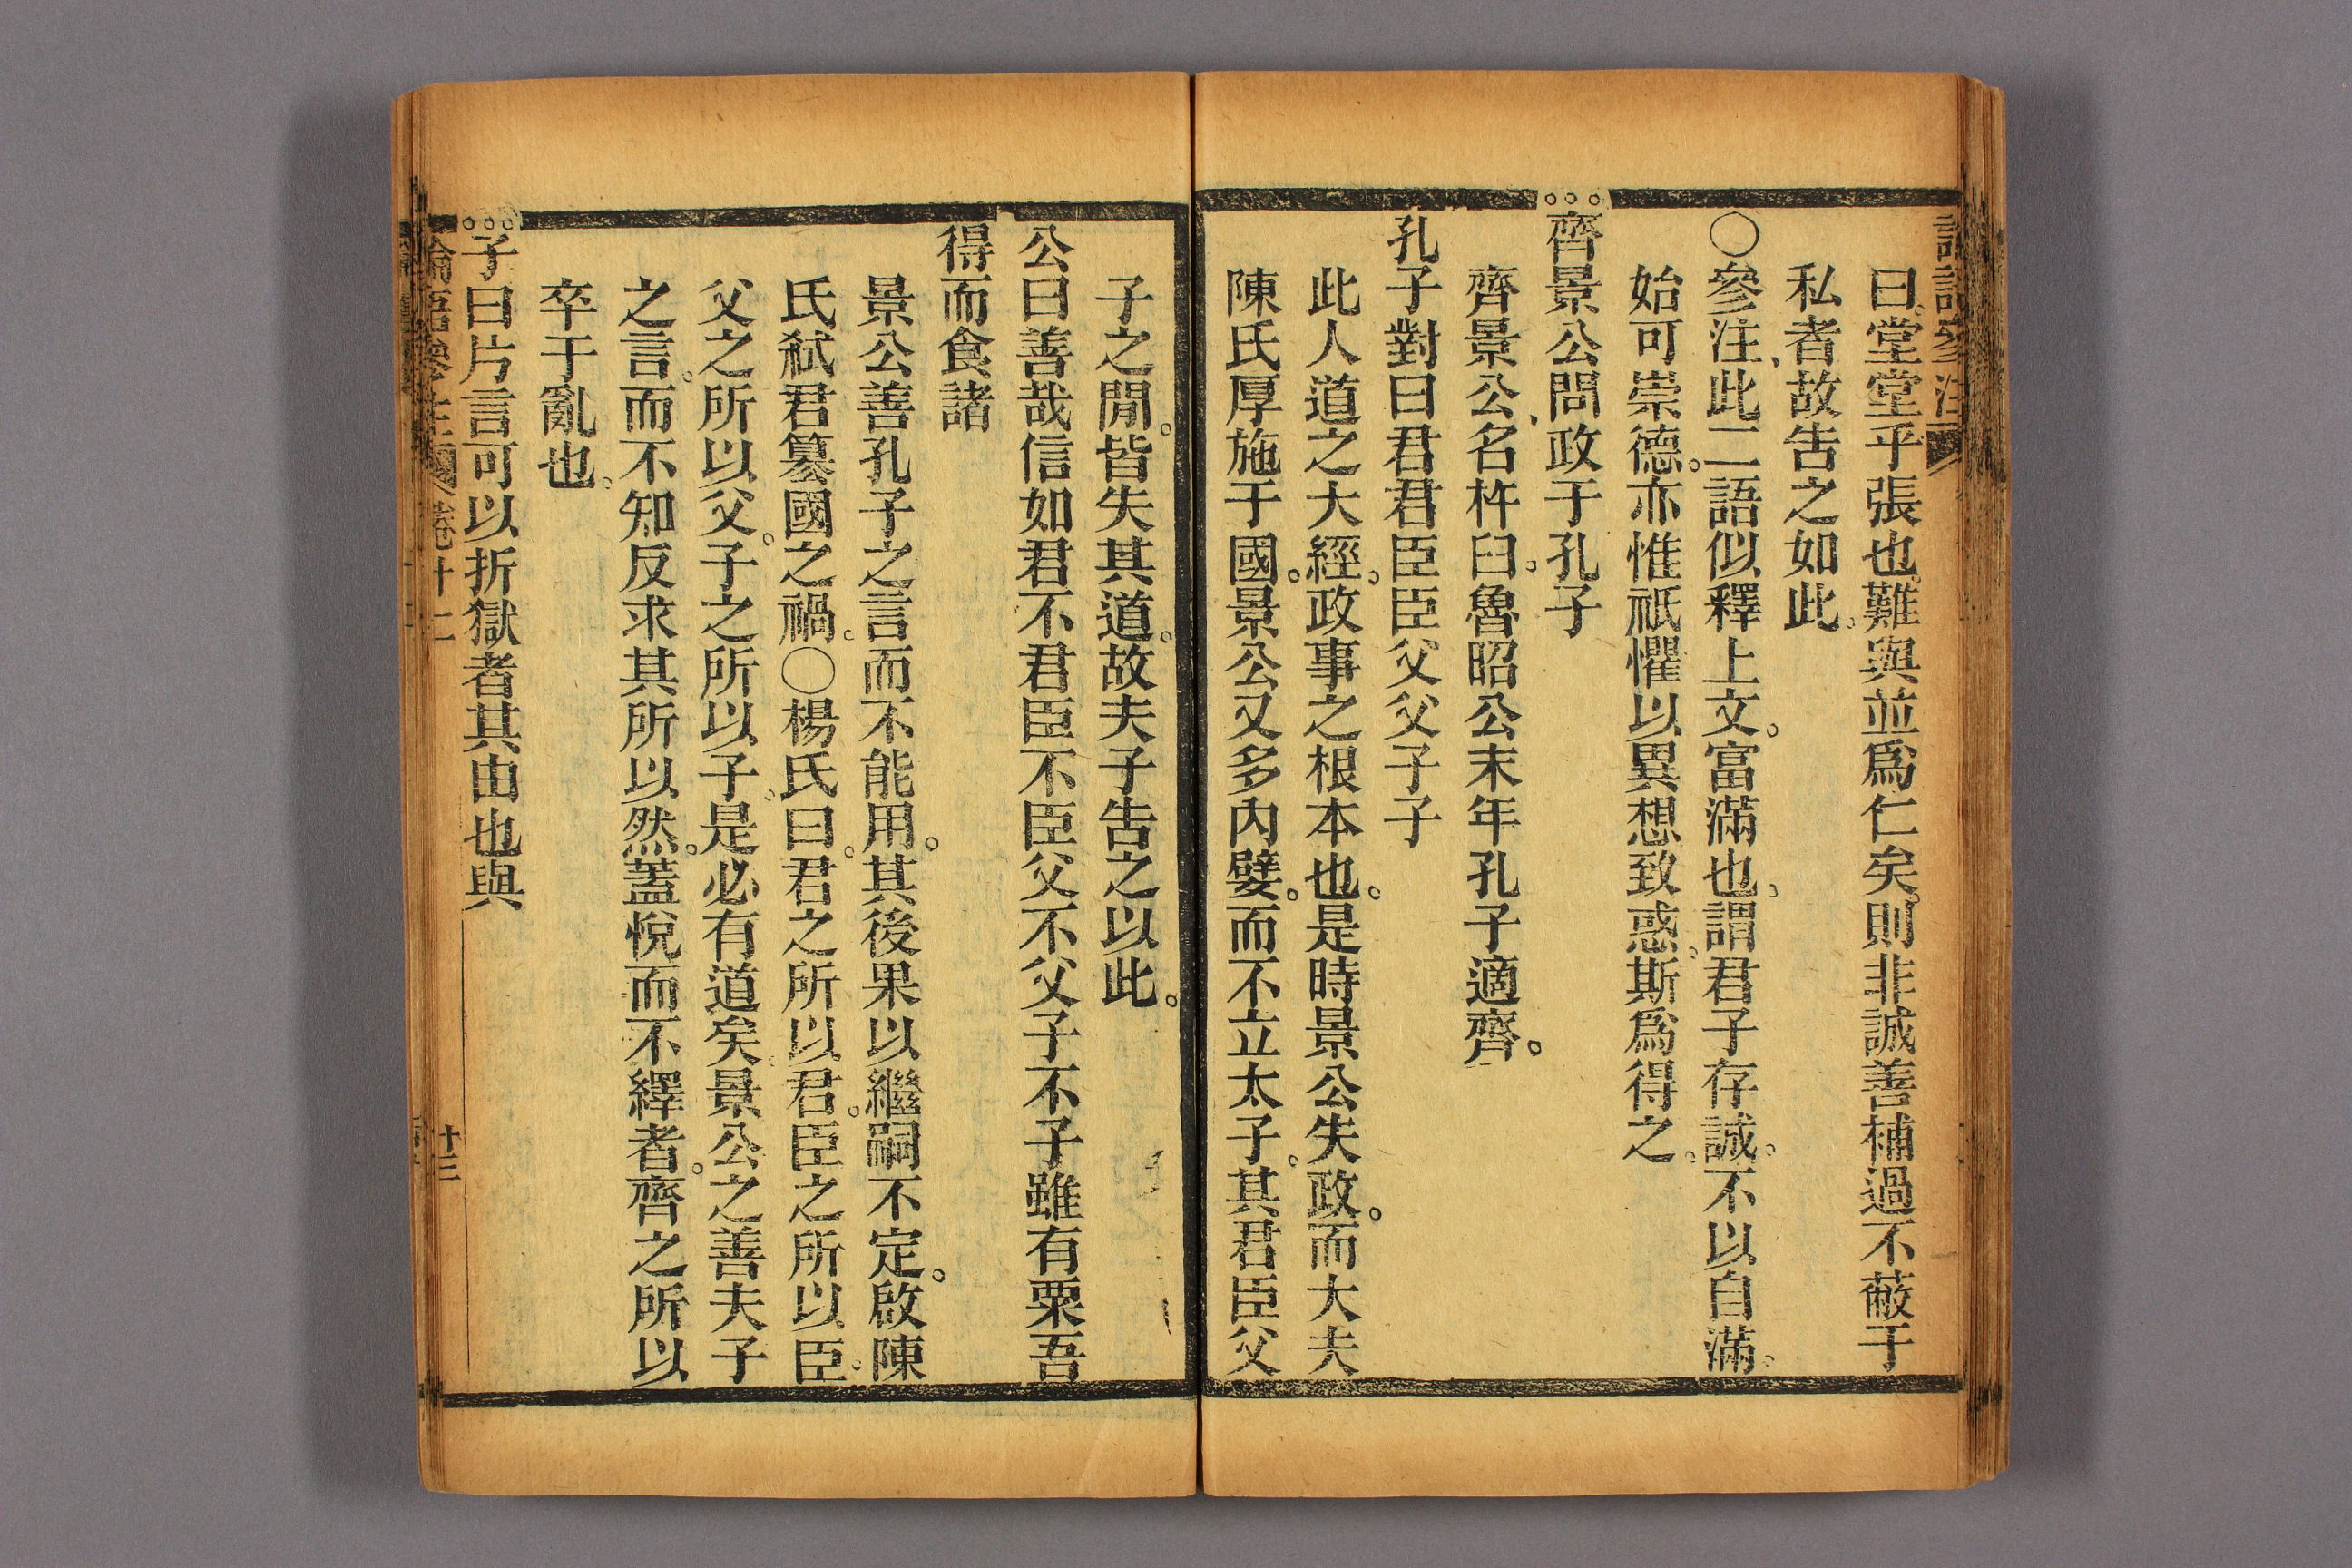 曰。堂堂乎張也。難與並爲仁矣。則非誠善補過不蔽于
私者。故告之如此。
〇參注、此二語似釋上文。富滿也。謂君子存誠。不以自滿。
始可崇德。亦惟祇懼以異想致惑。斯爲得之。
齊景公問政于孔子
齊景公、名杵臼。魯昭公末年孔子適齊。
孔子對曰君君臣臣父父子子
此人道之大經。政事之根本也。是時景公失政。而大夫
陳氏厚施于國。景公又多內嬖。而不立太子。其君臣父
子之閒。皆失其道。故夫子告之以此。
公曰善哉信如君不君臣不臣父不父子不子雖有粟吾
得而食諸
景公善孔子之言而不能用。其後果以繼嗣不定。啟陳
氏弑君篡國之禍。〇楊氏曰。君之所以君。臣之所以臣。
父之所以父。子之所以子。是必有道矣。景公之善夫子
之言。而不知反求其所以然。蓋悅而不繹者。齊之所以
卒于亂也。
子曰片言可以折獄者其由也與
論語參注 卷十二 十三